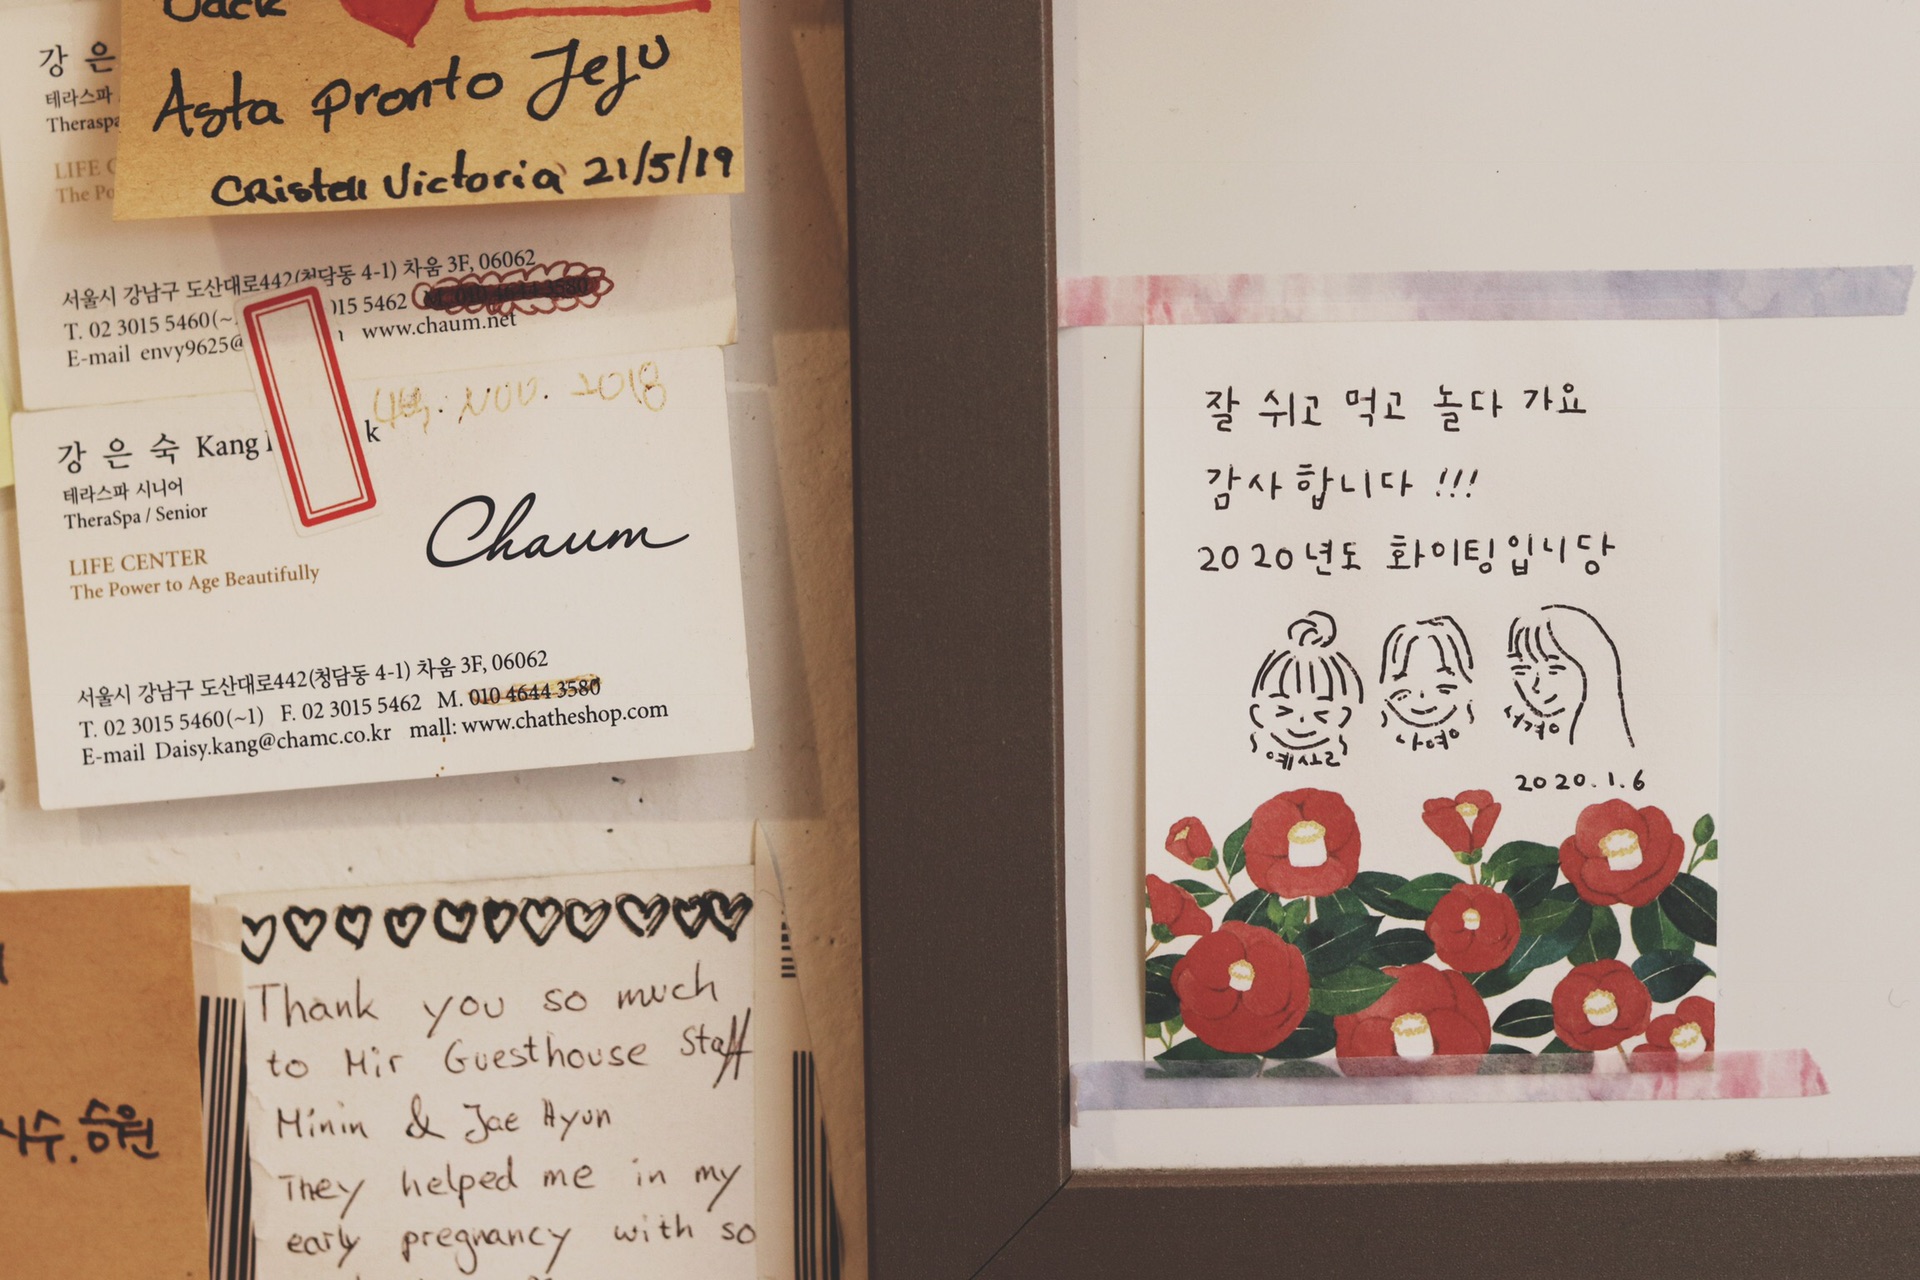 Jack
Asta pronto Jeju
Cristell Victoria 21/5/19
강 은
테라스파
Theraspa
LIFE C
The Po
서울시 강남구 도산대로442(청담동 4-1) 차움 3F, 06062
T. 02 3015 5460(~ 015 5462 M. 010 4644 3580
E-mail envy9625@ www.chaum.net
NOV. 2018
강 은 숙 Kang k
테라스파 시니어
TheraSpa / Senior
Chaum
LIFE CENTER
The Power to Age Beautifully
서울시 강남구 도산대로442(청담동 4-1) 차움 3F, 06062
T. 02 3015 5460(~1) F. 02 3015 5462 M. 010 4644 3580
E-mail Daisy.kang@chamc.co.kr mall: www.chatheshop.com
수. 승원
Thank you so much
to Mir Guesthouse Staff
Minin & Jae Hyun
They helped me in my
early pregnancy with so
잘 쉬고 먹고 놀다 가요
감사합니다 !!!
2020년도 화이팅입니당
예소리 나영 서경
2020.1.6